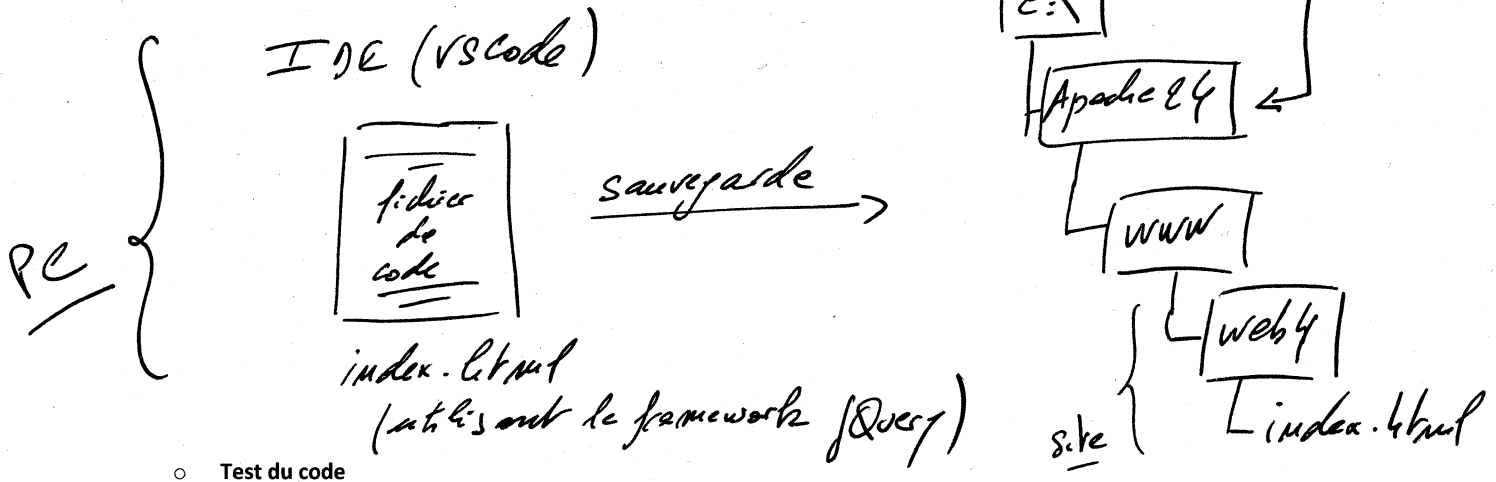 PC
IDE (VSCode)
fichier
de
code
index.html
(utilisant le framework jQuery)
sauvegarde
C:\
Apache24
www
web4
index.html
site
○ Test du code